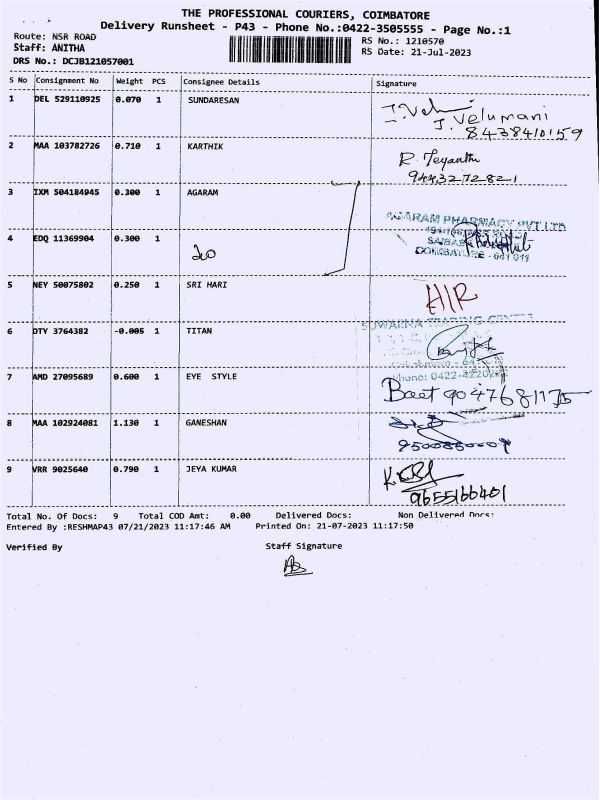 THE PROFESSIONAL COURIERS, COIMBATORE
Delivery Runsheet - P43 - Phone No.:0422-3505555 - Page No.:1
Route: NSR ROAD
RS No.: 1210570
Staff: ANITHA
RS Date: 21-Jul-2023
DRS No.: DCJB121057001
S No Consignment No Weight PCS Consignee Details Signature
1 DEL 529110925 0.070 1 SUNDARESAN
J. Velumani
8438410159
2 MAA 103782726 0.710 1 KARTHIK
R. Jeyanthi
9443272821
3 IXM 504184945 0.300 1 AGARAM
AGARAM PHARMACY PVT LTD
4 EDQ 11369904 0.300 1
COIMBATORE - 641 011
5 NEY 50075802 0.250 1 SRI HARI
HIR
6 DTY 3764382 -0.005 1 TITAN
7 AMD 27095689 0.600 1 EYE STYLE
Phone: 0422-
8 MAA 102924081 1.130 1 GANESHAN
9 VRR 9025640 0.790 1 JEYA KUMAR
9655166401
Total No. Of Docs: 9 Total COD Amt: 0.00 Delivered Docs: Non Delivered Docs:
Entered By :RESHMAP43 07/21/2023 11:17:46 AM Printed On: 21-07-2023 11:17:50
Verified By Staff Signature